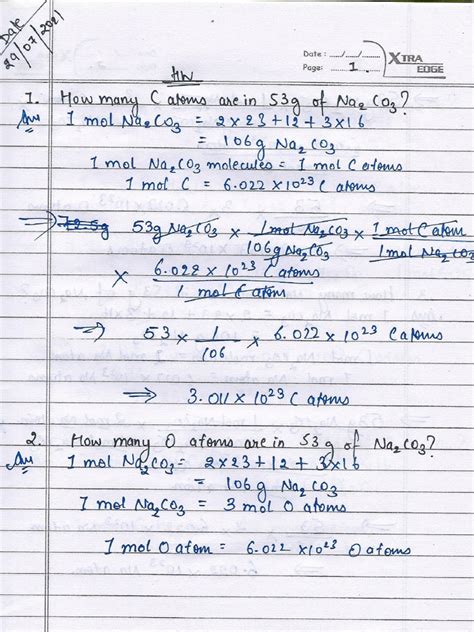 Date
29/07/2021
Date : __/__/__
Page: 1
XTRA EDGE
HW
1. How many C atoms are in 53g of Na₂CO₃?
Ans 1 mol Na₂CO₃ = 2×23+12+3×16
= 106g Na₂CO₃
1 mol Na₂CO₃ molecules = 1 mol C atoms
1 mol C = 6.022 × 10²³ C atoms
⇒ 53g Na₂CO₃ × 1 mol Na₂CO₃ / 106g Na₂CO₃ × 1 mol C atom / 1 mol Na₂CO₃
× 6.022 × 10²³ C atoms / 1 mol C atom
⇒ 53 × 1/106 × 6.022 × 10²³ C atoms
⇒ 3.011 × 10²³ C atoms
2. How many O atoms are in 53g of Na₂CO₃?
Ans 1 mol Na₂CO₃ = 2×23+12+3×16
= 106g Na₂CO₃
1 mol Na₂CO₃ = 3 mol O atoms
1 mol O atom = 6.022 ×10²³ O atoms